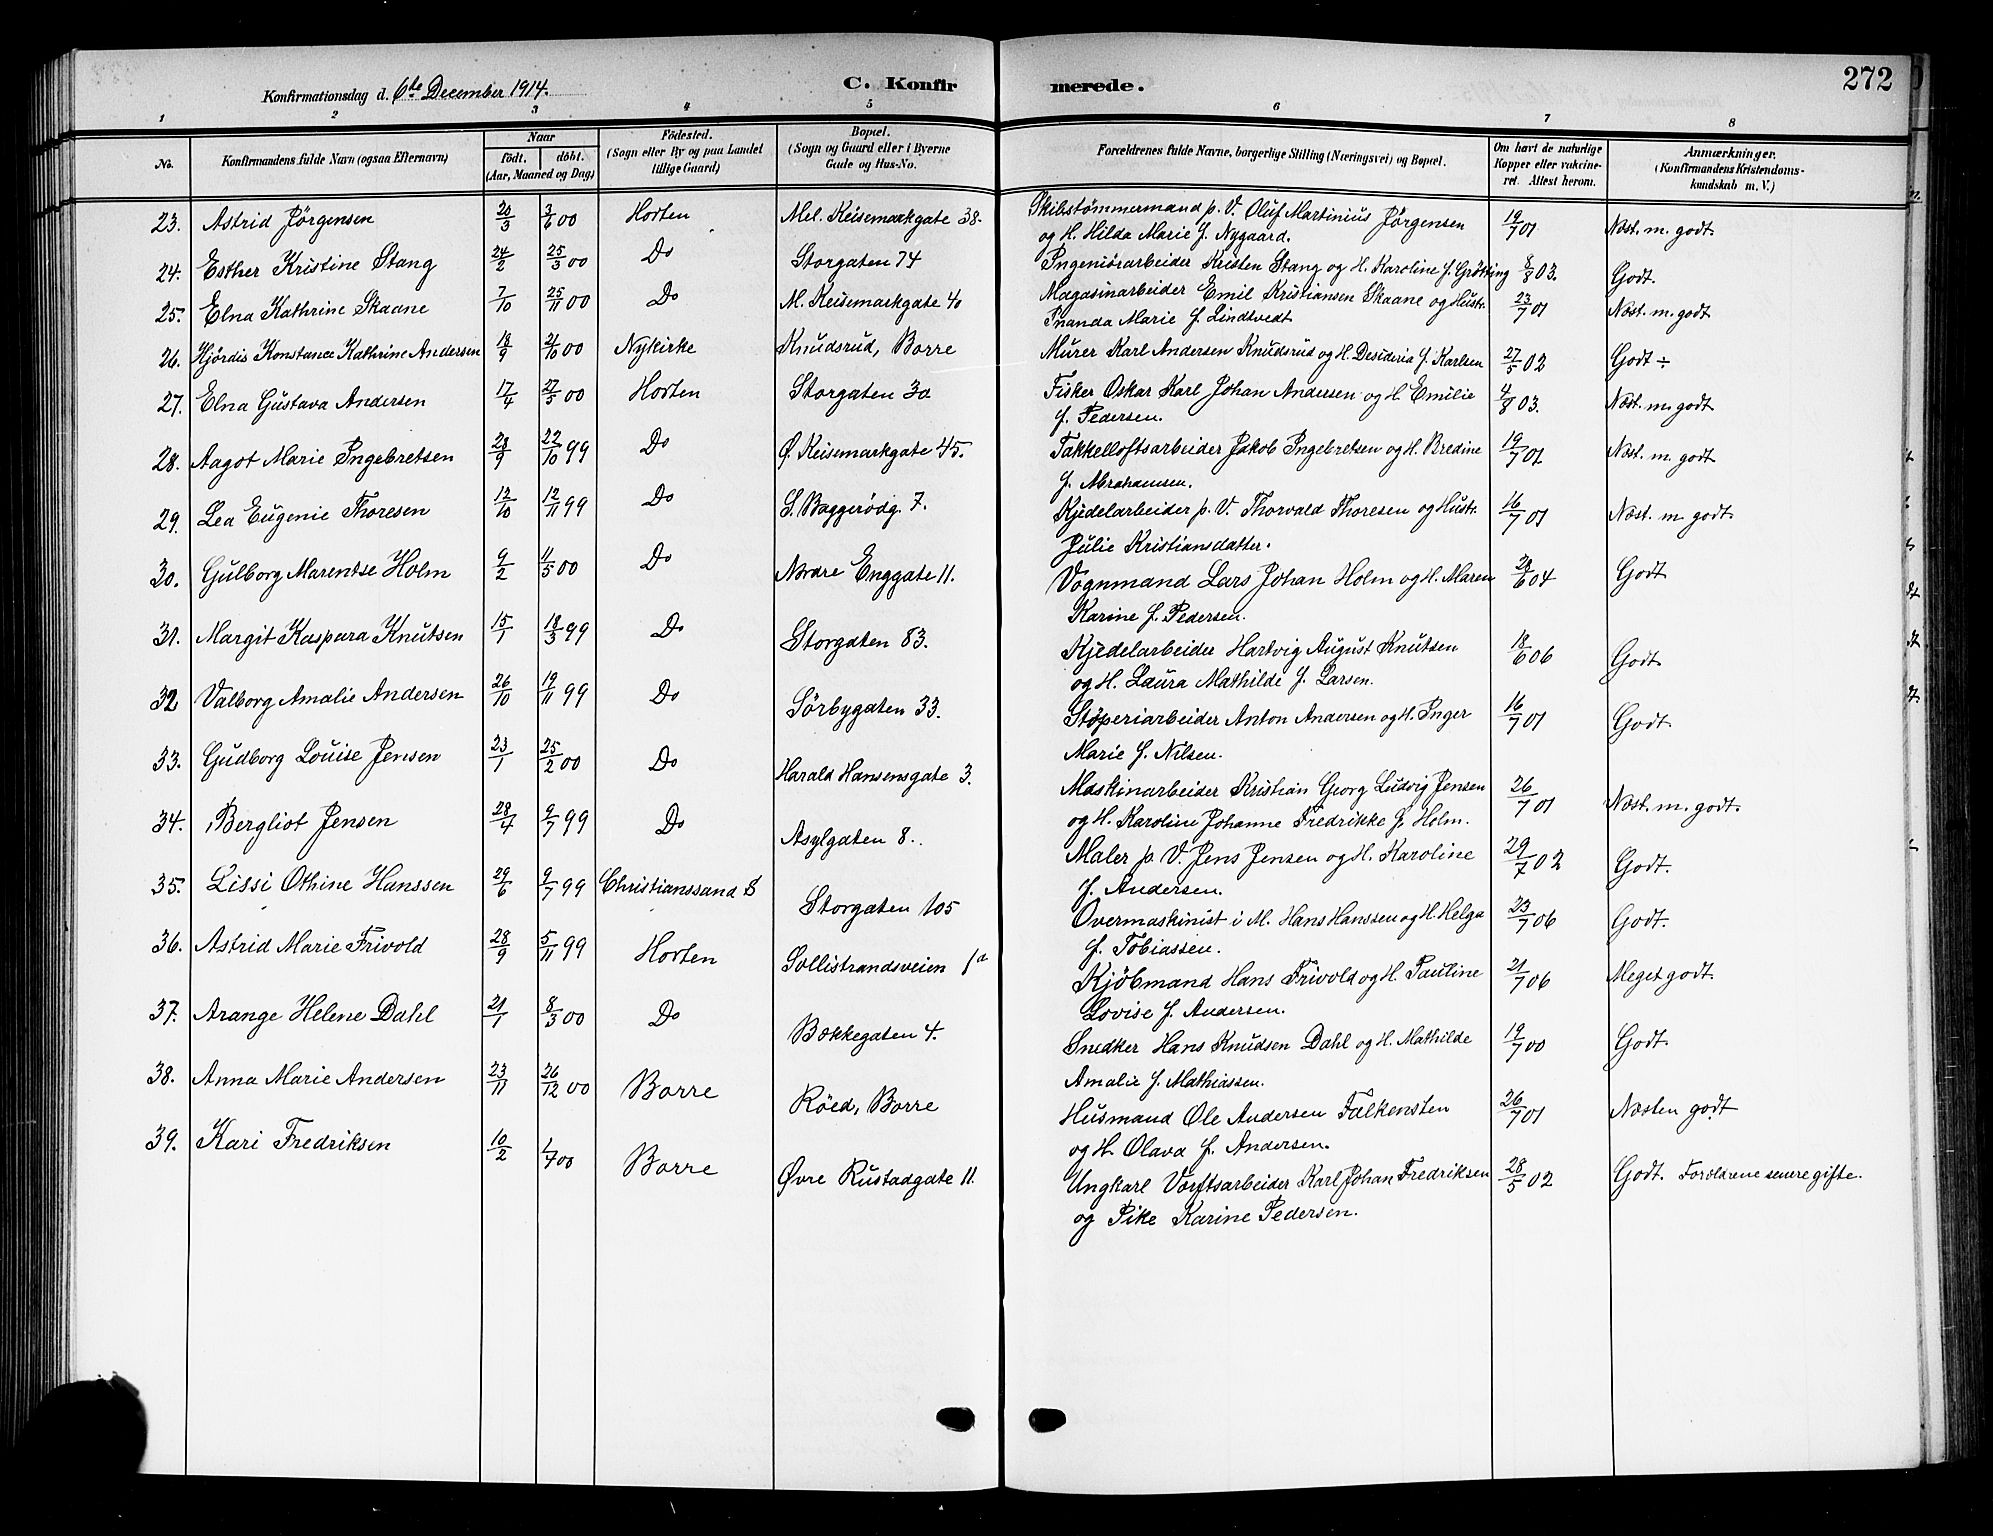 272
Konfirmationsdag d. 6te December 1914.
C. Konfirmerede.
1 2 3 4 5 6 7 8
No. Konfirmandens fulde Navn (ogsaa Efternavn) Naar födt. döbt. (Aar, Maaned og Dag) Födested. (Sogn eller By og paa Landet tillige Gaard) Bopæl. (Sogn og Gaard eller i Byerne Gade og Hus-No. Forældrenes fulde Navne, borgerlige Stilling (Næringsvei) og Bopæl. Om havt de naturlige Kopper eller vakcineret. Attest herom. Anmærkninger. (Konfirmandens Kristendomskundskab m. V.)
23. Astrid Jörgensen 20/3 3/6 00 Horten Mel. Keisemarkgate 38. Skibstömmermand p. V. Oluf Martinius Jörgensen 19/7 01 Næst. m. godt.
og H. Hilda Marie f. Nygaard.
24. Esther Kristine Stang 24/2 25/3 00 Do Storgaten 74 Ingeniörarbeider Kristen Stang og H. Karoline f. Grötting 8/8 03. Godt.
25. Elna Kathrine Skaane 7/10 25/11 00 Do M. Keisemarkgate 40 Magasinarbeider Emil Kristiansen Skaane og Hustr. 23/7 01 Næst. m. godt
Inanda Marie f. Lindtvedt
26. Hjördis Konstance Kathrine Andersen 18/9 21/10 00 Nykirke Knudsrud, Borre Murer Karl Andersen Knudsrud og H. Desideria f. Karlsen 27/5 02 Godt ÷
27. Elna Gustava Andersen 17/4 27/5 00 Horten Storgaten 30 Fisker Oskar Karl Johan Andersen og H. Emilie 4/8 03. Næst. m. godt
f. Pedersen.
28. Aagot Marie Ingebretsen 23/9 22/10 99 Do Ö. Keisemarkgate 45. Takkelloftsarbeider Jakob Ingebretsen og H. Bredine 19/7 01 Næst. m. godt
f. Abrahamsen.
29. Lea Eugenie Thoresen 12/10 12/11 99 Do S. Baggerödg. 7. Kjedelarbeider p. V. Thorvald Thoresen og Hustr. 16/7 01 Næst. m. godt.
Julie Kristiansdatter.
30. Gulborg Marentse Holm 9/2 4/5 00 Do Nordre Enggate 11. Vognmand Lars Johan Holm og H. Maren 28/6 04 Godt
Karine f. Pedersen.
31. Margit Kaspara Knutsen 15/1 18/3 99 Do Storgaten 83. Kjedelarbeider Hartvig August Knutsen 18/6 06 Godt.
og H. Laura Mathilde f. Larsen.
32 Valborg Amalie Andersen 26/10 19/11 99 Do Sörbygaten 33. Stöperiarbeider Anton Andersen og H. Inger 16/7 01 Godt.
Marie f. Nilsen.
33. Gudborg Louise Jensen 23/1 25/2 00 Do Harald Hansensgate 3. Maskinarbeider Kristian Georg Ludvig Jensen 26/7 01 Næst. m. godt.
og H. Karoline Johanne Fredrikke f. Holm.
34. Bergliot Jensen 28/4 9/7 99 Do Asylgaten 8. Maler p. V. Jens Jensen og H. Karoline 29/7 02 Godt.
f. Andersen.
35. Lissi Othine Hanssen 29/6 9/7 99 Christianssand S Storgaten 105 Overmaskinist i M. Hans Hanssen og H. Helga 23/7 06 Godt.
f. Tobiassen.
36. Astrid Marie Frivold 28/9 5/11 99 Horten Sollistrandsveien 1a Kjöbmand Hans Frivold og H. Pauline 21/7 06 Meget godt.
Lovise f. Andersen.
37. Arange Helene Dahl 21/1 8/3 00 Do Bækkegaten 4. Snedker Hans Knudsen Dahl og H. Mathilde 19/7 00 Godt
Amalie f. Mathiassen.
38. Anna Marie Andersen 23/11 26/12 00 Borre Röed, Borre Husmand Ole Andersen Falkensten 26/7 01 Næsten godt
og H. Olava f. Andersen.
39. Kari Fredriksen 10/2 1/4 00 Borre Övre Rustadgate 11. Ungkarl Værftsarbeider Karl Johan Fredriksen 28/5 02 Godt. Forældrene senere gifte.
og Pike Karine Pedersen.